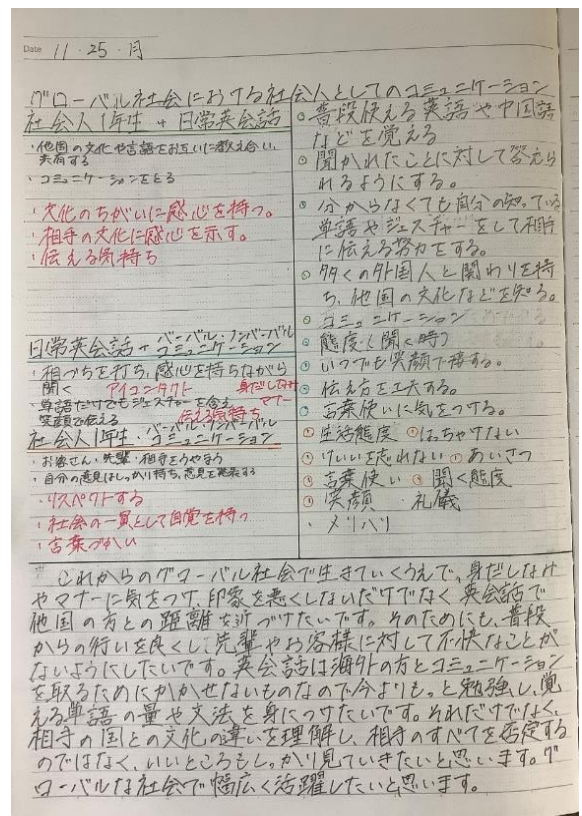 Date 11・25・月
グローバル社会における社会人としてのコミュニケーション
社会人1年生 + 日常英会話
・他国の文化や言語をお互いに教え合い、
共有する
・コミュニケーションをとる
・文化のちがいに感心を持つ。
・相手の文化に感心を示す。
・伝える気持ち
日常英会話 + バーバル・ノンバーバル
コミュニケーション
・相づちを打ち、感心を持ちながら
聞く アイコンタクト 身だしなみ
・単語だけでもジェスチャーを含め マナー
笑顔で伝える 伝える気持ち
社会人1年生・バーバル・ノンバーバル
コミュニケーション
・お客さん・先輩・相手をうやまう
・自分の意見はしっかり持ち、意見を発表する
・リスペクトする
・社会の一員として自覚を持つ
・言葉づかい
○普段使える英語や中国語
などを覚える
○聞かれたことに対して答えら
れるようにする。
○分からなくても自分の知っている
単語やジェスチャーをして相手
に伝える努力をする。
○多くの外国人と関わりを持
ち、他国の文化などを知る。
○コミュニケーション
○態度(聞く時)
○いつでも笑顔で接する。
○伝え方を工夫する。
○言葉使いに気をつける。
○生活態度 ○はっちゃけない
○けいいを忘れない ○あいさつ
○言葉使い ○聞く態度
○笑顔 ・礼儀
・メリハリ
これからのグローバル社会で生きていくうえで、身だしなみ
やマナーに気をつけ、印象を悪くしないだけでなく英会話で
他国の方との距離を近づけたいです。そのためにも、普段
からの行いを良くし、先輩やお客様に対して不快なことが
ないようにしたいです。英会話は海外の方とコミュニケーション
を取るためにかかせないものなので今よりもっと勉強し、覚
える単語の量や文法を身につけたいです。それだけでなく、
相手の国との文化の違いを理解し、相手のすべてを否定する
のではなく、いいところもしっかり見ていきたいと思います。グ
ローバルな社会で幅広く活躍したいと思います。